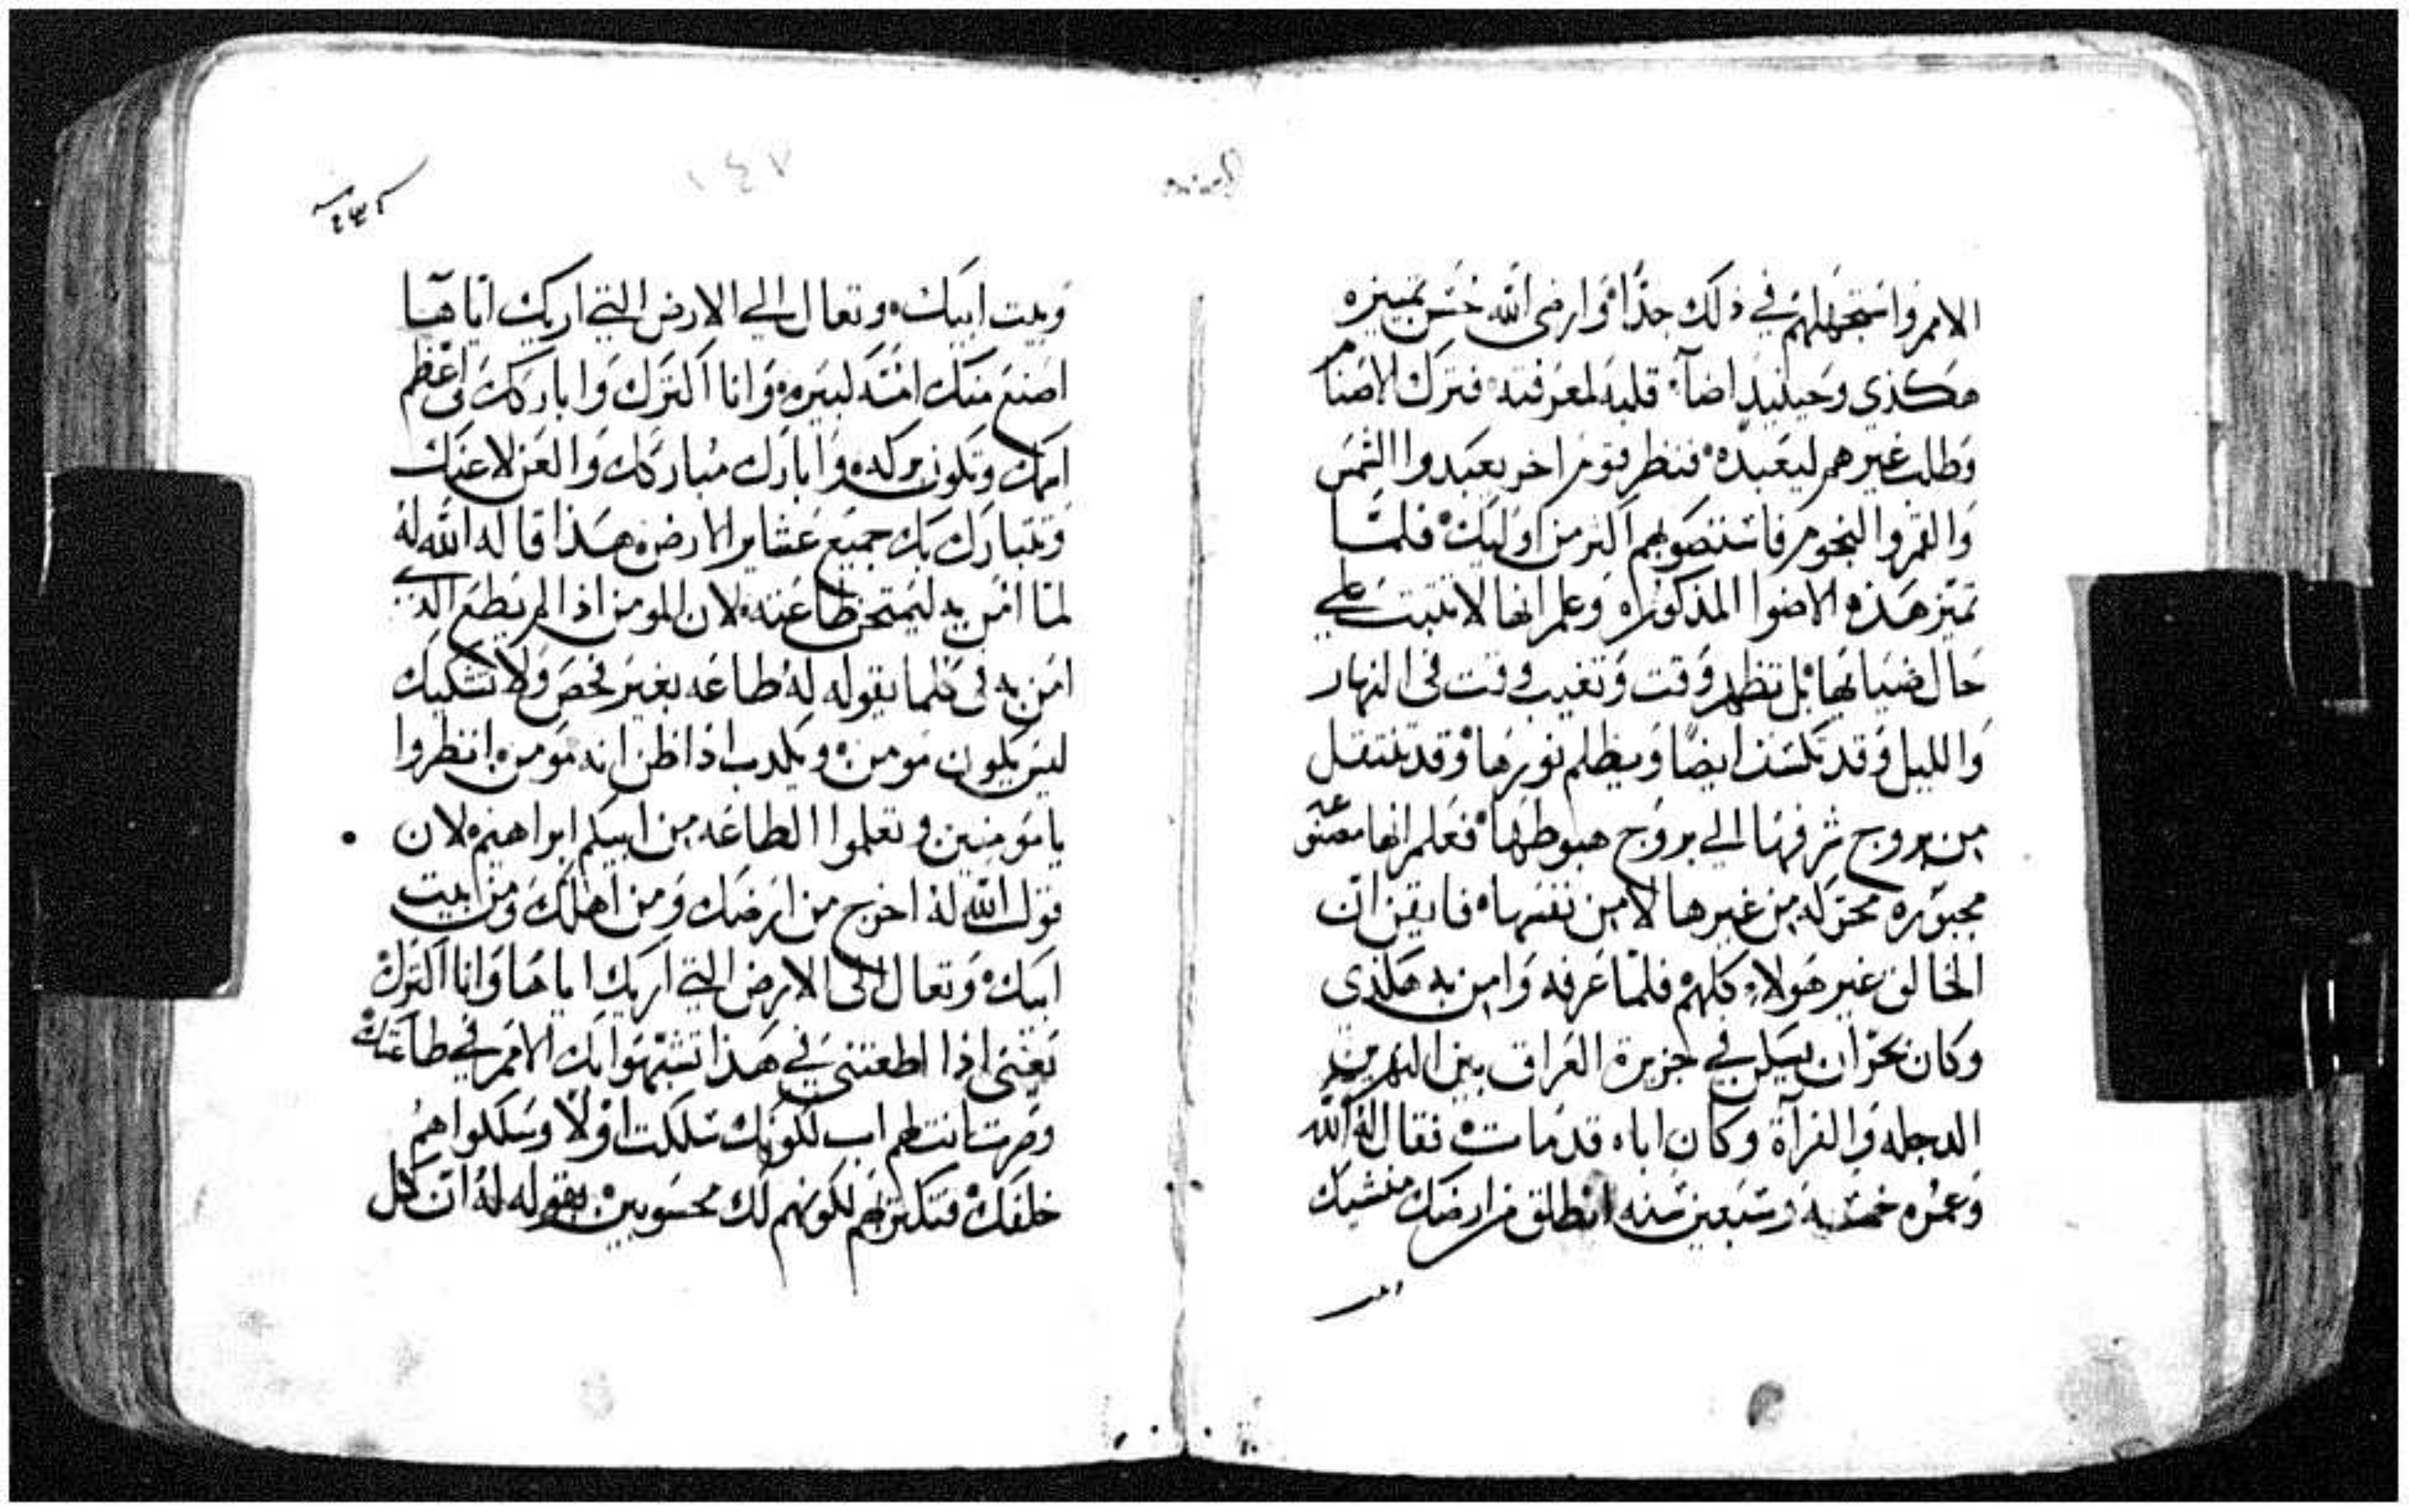 الامر واستجهلهم في ذلك جدا وارضى الله حسن تمييزه
هكذي وحينيد اضآ قلبه لمعرفته فترك الاصنام
وطلب غيرهم ليعبده فنظر قوم اخر يعبدوا الشمس
والقمر والنجوم فاستصوبهم اكثر من اوليك فلما
تميز هذه الاضوا المذكوره وعلم انها لا تثبت على
حال ضياها بل تظهر وقت وتغيب وقت في النهار
والليل وقد تكسف ايضا ويظلم نورها وقد تنتقل
من بروج شرفها الي بروج هبوطها فعلم انها مصنوعه
مجبوره محركه من غيرها لا من نفسها فايقن ان
الخالق غير هولاء كلهم فلما عرفه وامن به هكذي
وكان بحران يسكن في جزيرة العراق بين النهرين
الدجله والفراة وكان اباه قد مات فقال له الله
وعمره خمسه وسبعين سنه انطلق من ارضك
وبيت ابيك وتعال الي الارض التي اريك اياها
اصنع منك امه كبيره وانا اكثرك واباركك واعظم
اسمك وتكون بركه وابارك مباركك والعن لاعنك
وتتبارك بك جميع عشاير الارض هذا قاله الله له
لما امن به ليمتحن طاعته لان المومن اذا لم يطع الذي
امن به في كلما يقوله له طاعه بغير فحص ولا تشكيك
ليس يكون مومن ويكدب اذا ظن انه مومن انظروا
يا مومنين وتعلموا الطاعه من ابيكم ابراهيم لان
قول الله له اخرج من ارضك ومن اهلك ومن بيت
ابيك وتعال الى الارض التي اريك اياها وانا اكثرك
يعني اذا اطعتني في هذا تشبهوا بك الامم في طاعتك
وصرت انت لهم اب لكونك سلكت اولا وسلكوا هم
خلفك فتكثر بهم لكونهم لك محسوبين بقوله له ان كل